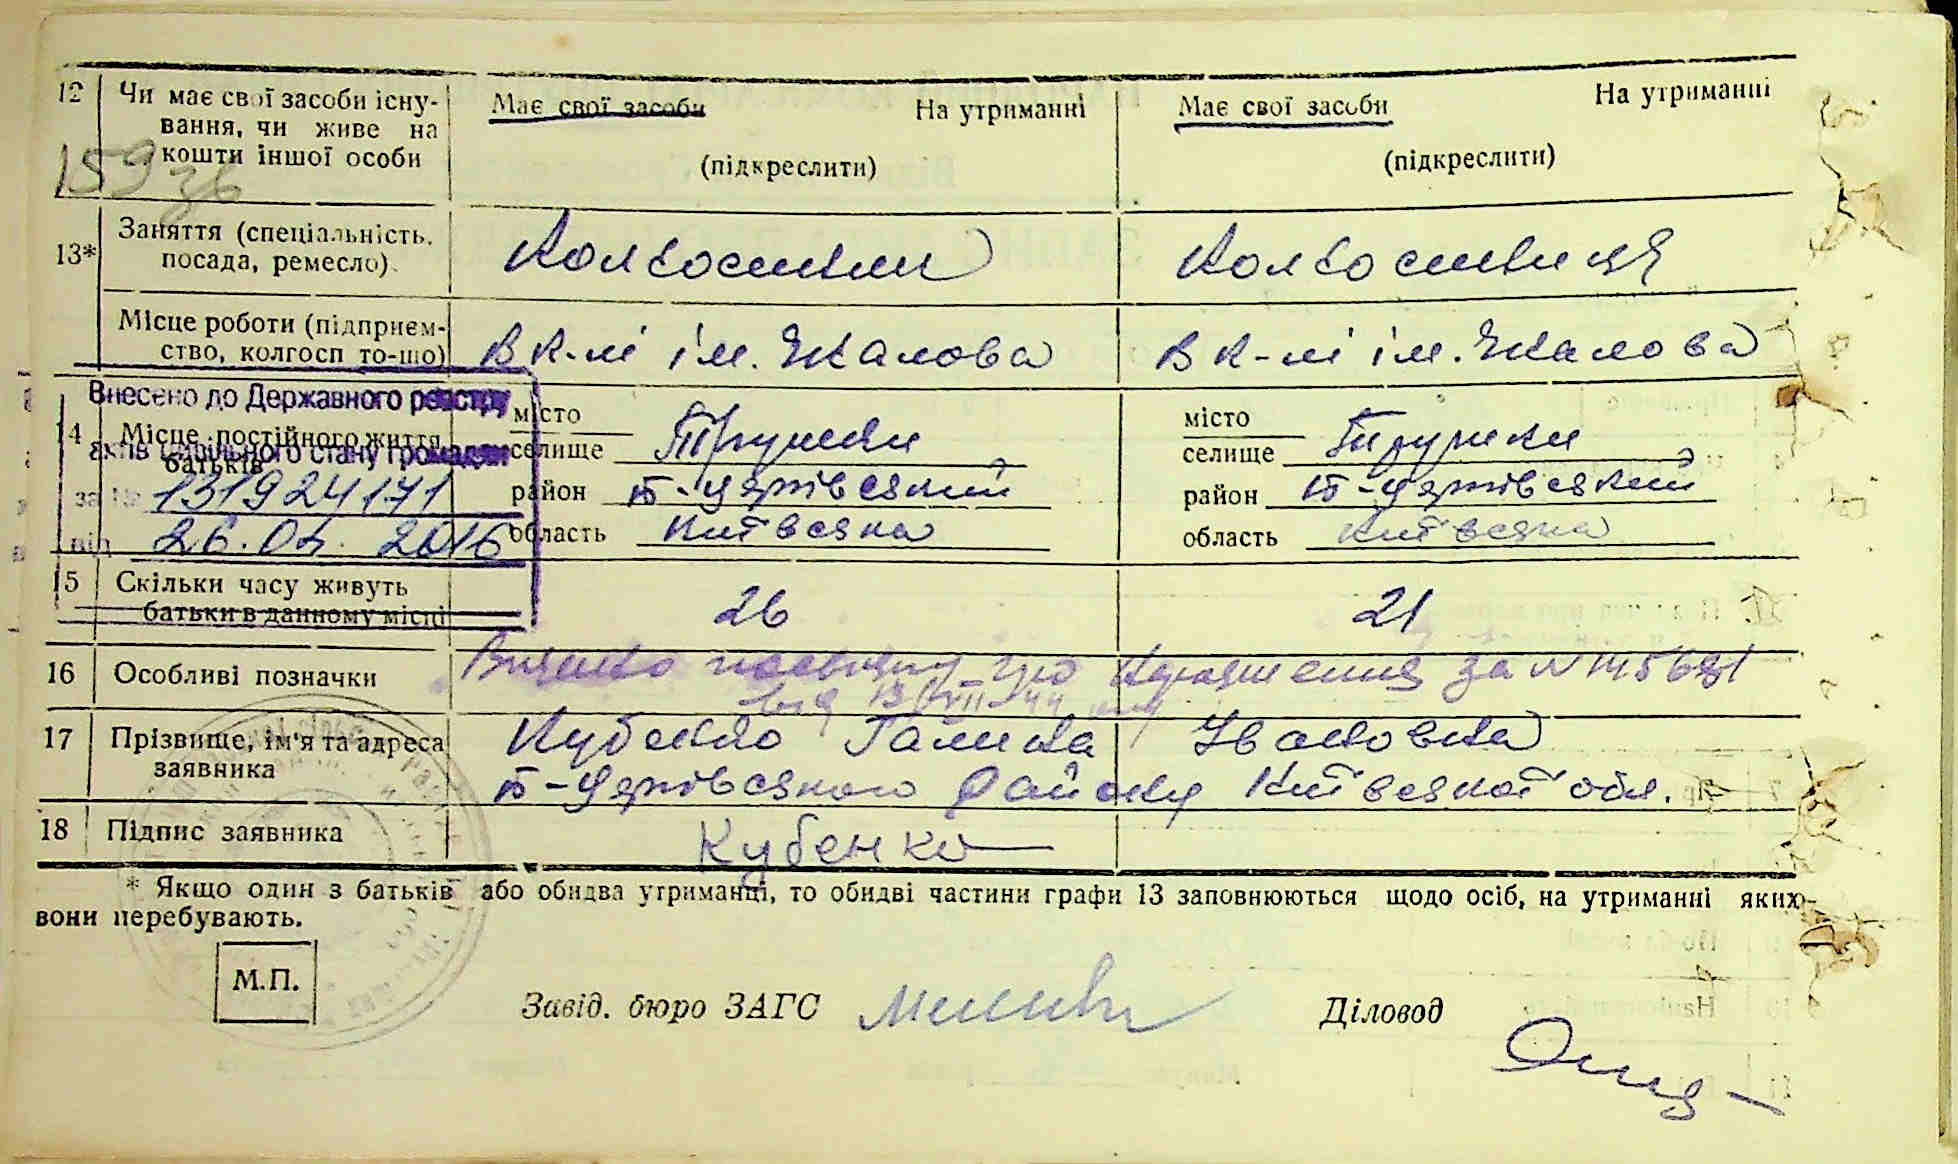 12 Чи має свої засоби існу- Має свої засоби На утриманні Має свої засоби На утриманні
вання, чи живе на
кошти іншої особи (підкреслити) (підкреслити)
159 зв
13* Заняття (спеціальність, Колгоспник Колгоспниця
посада, ремесло).
Місце роботи (підприєм- В к-пі ім. Чкалова В к-пі ім. Чкалова
ство, колгосп то-що)
Внесено до Державного реєстру
14 Місце постійного життя місто місто
батьків селище Трушки селище Трушки
актів цивільного стану громадян
за № 131924171 район Б-Церківський район Б-Церківський
від 26.01.2016 область Київська область Київська
15 Скільки часу живуть 26 21
батьки в данному місці
16 Особливі позначки Видано про народження за №
17 Прізвище, ім'я та адреса Кубенко Галина Івановна
заявника Б-Церківського району Київської обл.
18 Підпис заявника Кубенко
* Якщо один з батьків або обидва утриманці, то обидві частини графи 13 заповнюються щодо осіб, на утриманні яких
вони перебувають.
М.П.
Завід. бюро ЗАГС Діловод